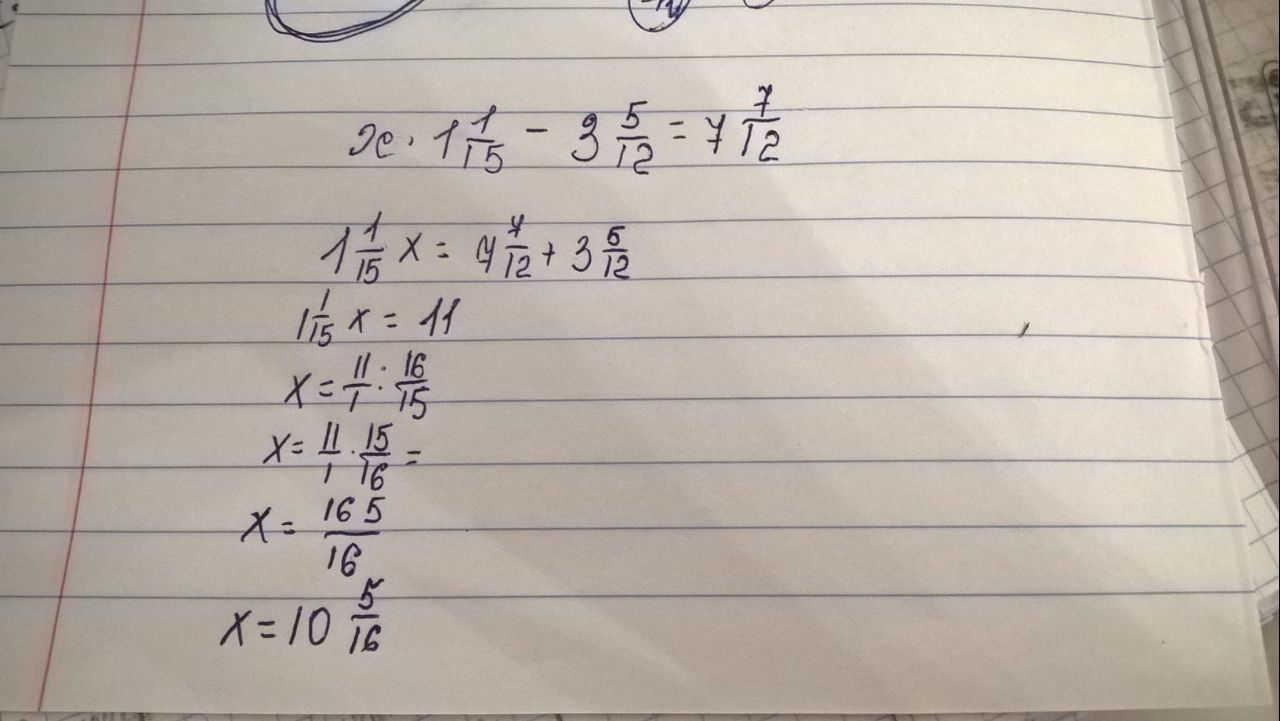 x · 1 1/15 - 3 5/12 = 7 7/12
1 1/15 x = 7 7/12 + 3 5/12
1 1/15 x = 11
x = 11/1 : 16/15
x = 11/1 · 15/16 =
x = 165/16
x = 10 5/16